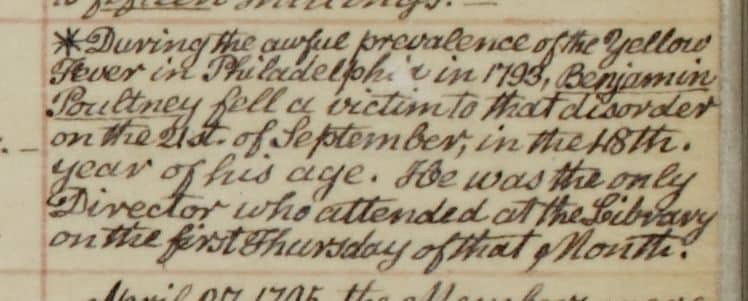 to fifteen shillings. —
*During the awful prevalence of the Yellow
Fever in Philadelphia in 1793, Benjamin
Poultney fell a victim to that disorder
on the 21st. of September, in the 48th.
year of his age. He was the only
Director who attended at the Library
on the first Thursday of that Month.
April 27, 1795, the Members